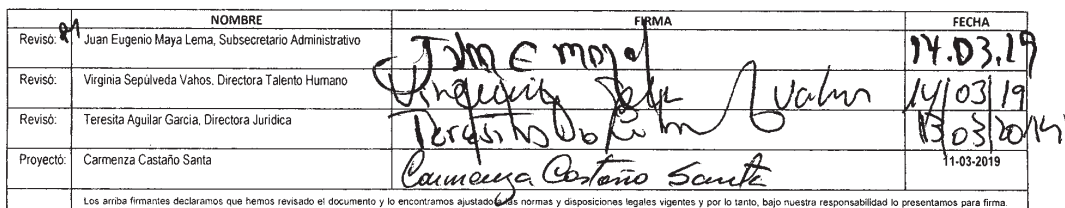 NOMBRE FIRMA FECHA
Revisó: Juan Eugenio Maya Lema, Subsecretario Administrativo 14.03.19
Revisó: Virginia Sepúlveda Vahos. Directora Talento Humano 14/03/19
Revisó: Teresita Aguilar Garcia, Directora Juridica 13/03/2019
Proyectó: Carmenza Castaño Santa Carmenza Castaño Santa 11-03-2019
Los arriba firmantes declaramos que hemos revisado el documento y lo encontramos ajustado a las normas y disposiciones legales vigentes y por lo tanto, bajo nuestra responsabilidad lo presentamos para firma.